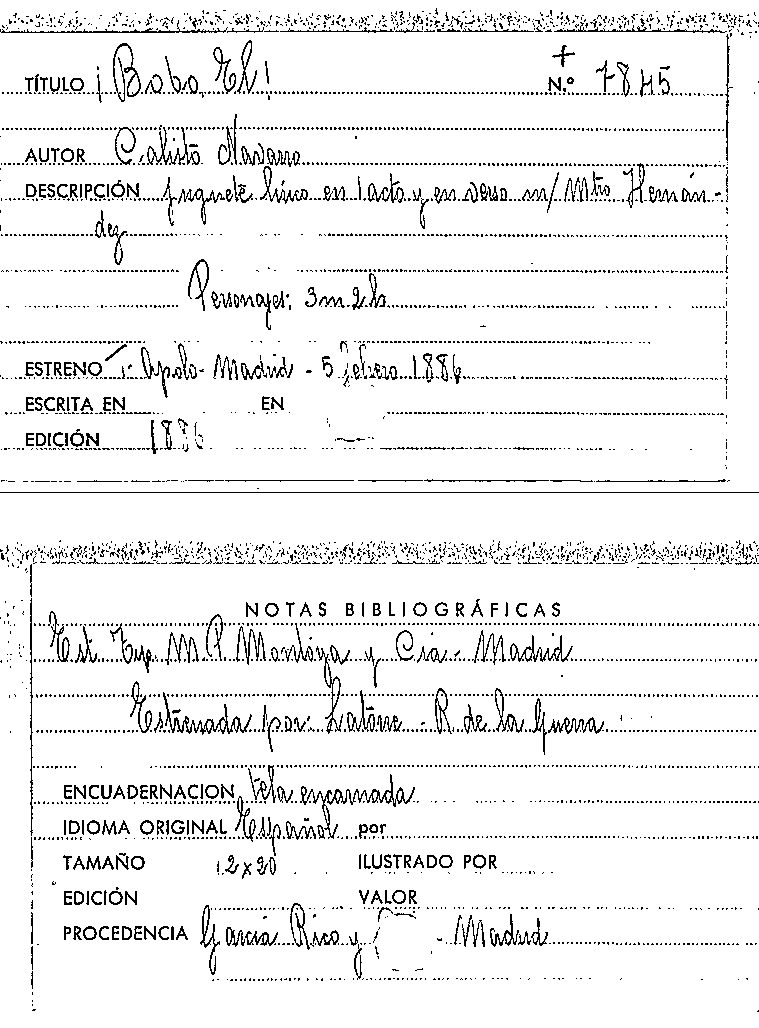 TÍTULO ¡Bobo, El!
+
N.º 7845
AUTOR Calisto Navarro
DESCRIPCIÓN juguete lírico en 1 acto y en verso m/ Mtro Hernán-
dez
Personajes: 3m 2h
ESTRENO T. Apolo - Madrid - 5 febrero 1886
ESCRITA EN EN
EDICIÓN 1886
NOTAS BIBLIOGRÁFICAS
Est. Tip. M P Montoya y Cía - Madrid
Estrenada por: Latorre - R de la Guerra
ENCUADERNACION tela encarnada
IDIOMA ORIGINAL Español por
TAMAÑO 12x20 ILUSTRADO POR
EDICIÓN VALOR
PROCEDENCIA García Rico y - Madrid